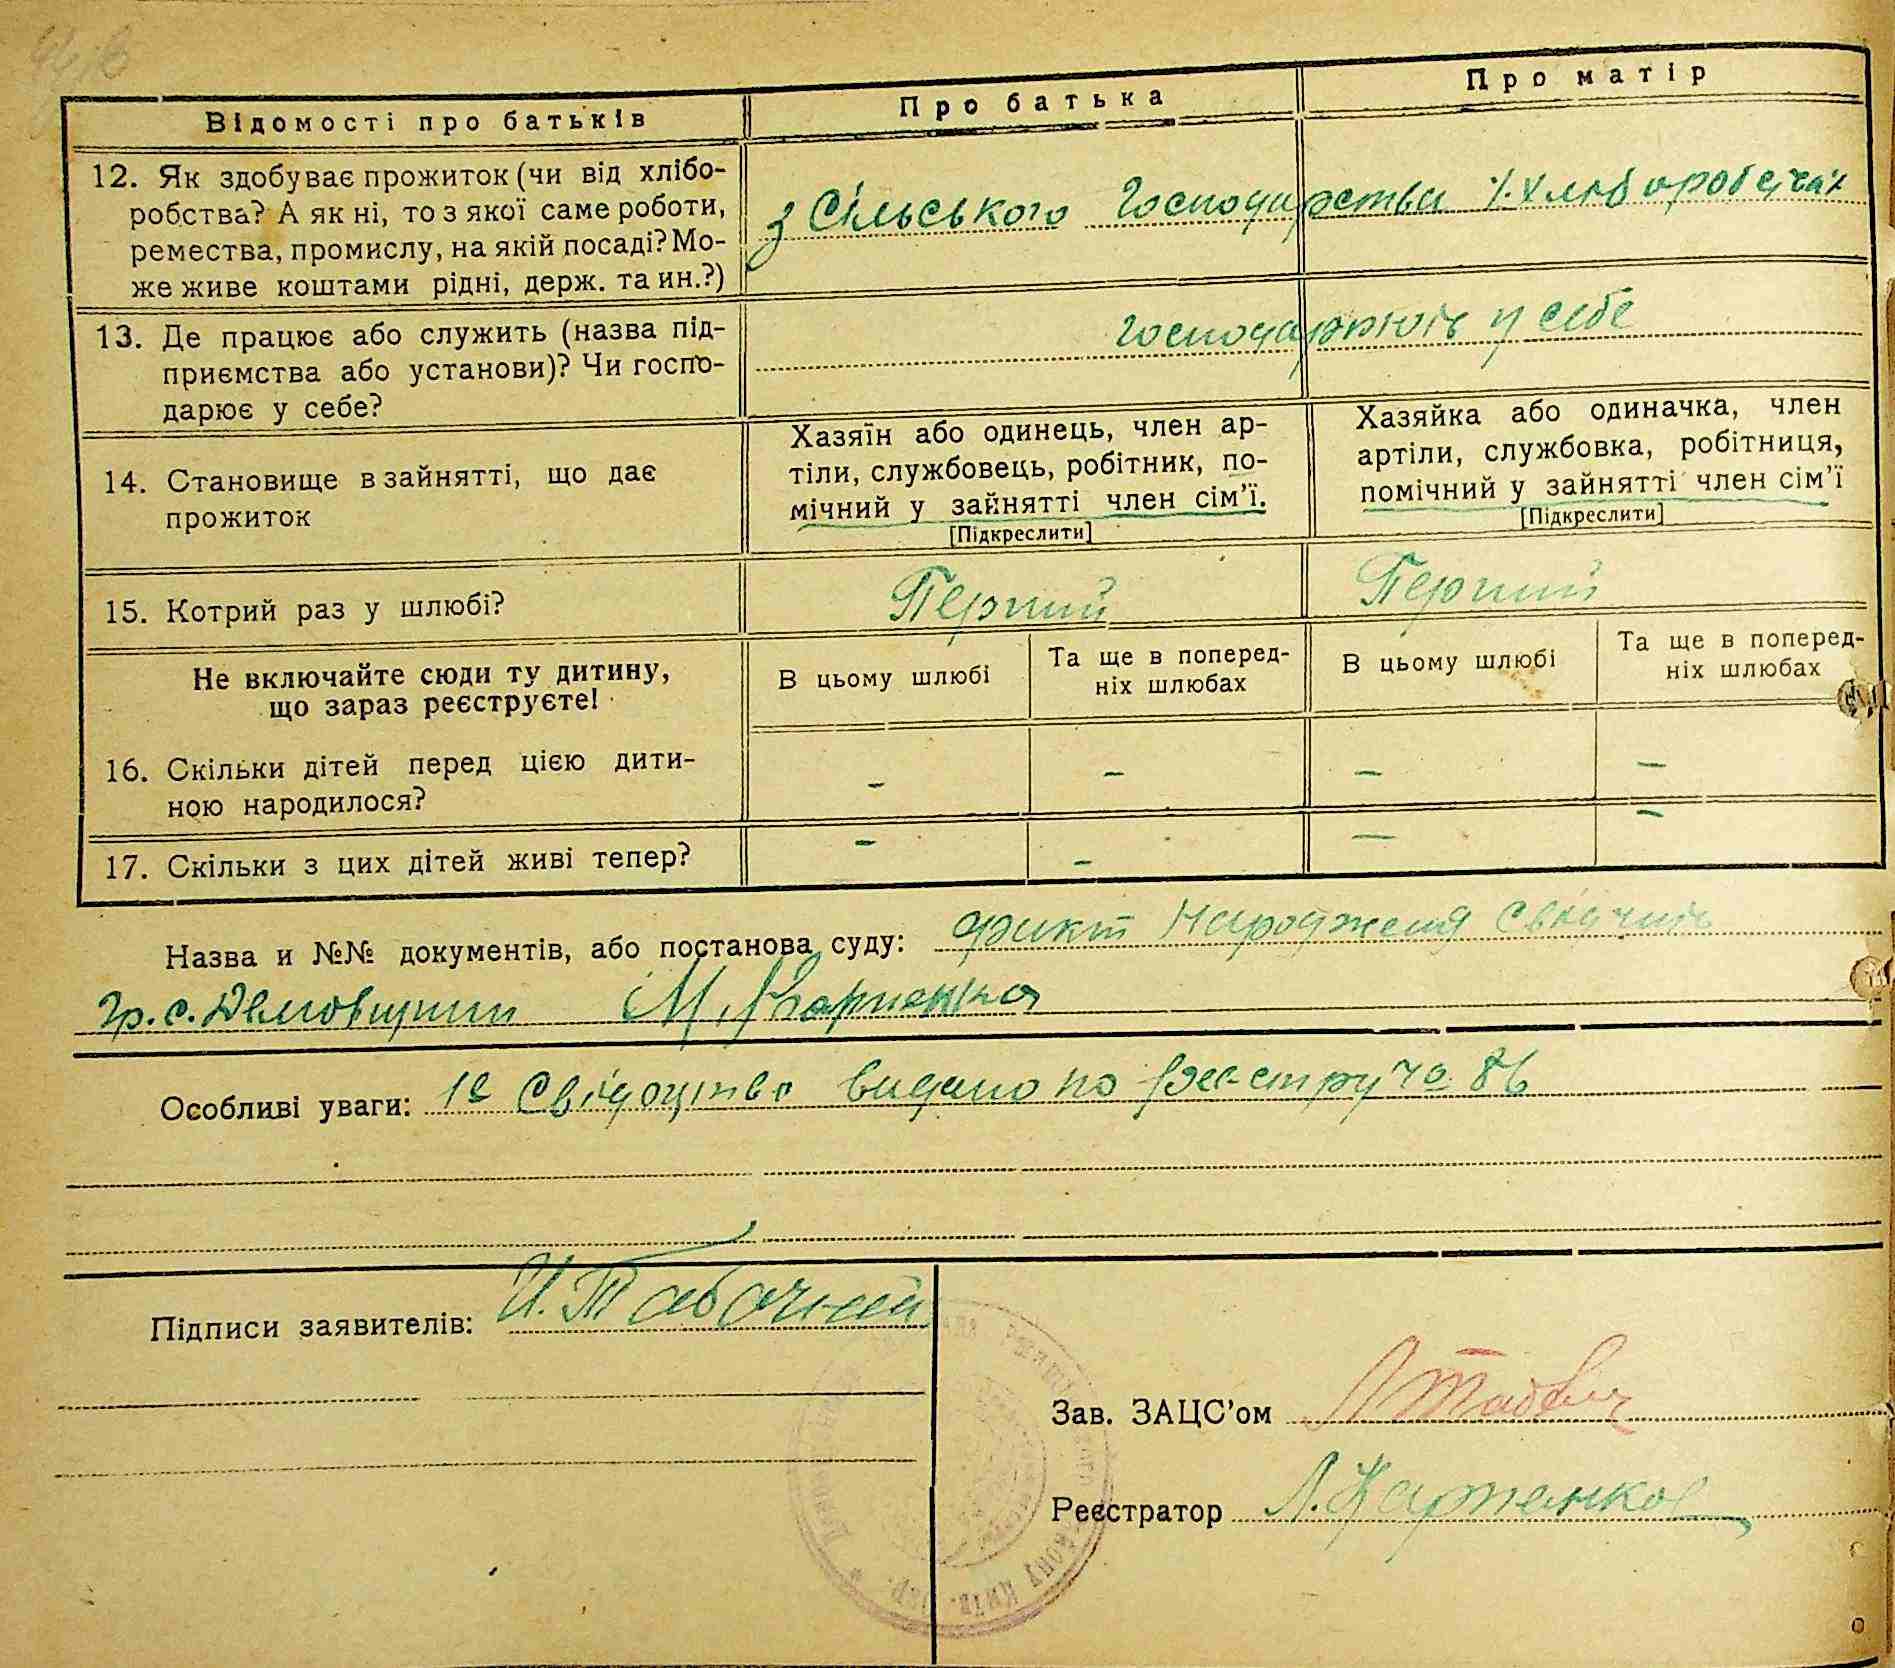 Відомості про батьків
Про батька
Про матір
12. Як здобуває прожиток (чи від хлібо-
робства? А як ні, то з якої саме роботи,
ремества, промислу, на якій посаді? Мо-
же живе коштами рідні, держ. та ин.?)
з Сільського Господарства
13. Де працює або служить (назва під-
приємства або установи)? Чи госпо-
дарює у себе?
Господарюють у себе
14. Становище в зайнятті, що дає
прожиток
Хазяїн або одинець, член ар-
тіли, службовець, робітник, по-
мічний у зайнятті член сім'ї.
[Підкреслити]
Хазяйка або одиначка, член
артіли, службовка, робітниця,
помічний у зайнятті член сім'ї
[Підкреслити]
15. Котрий раз у шлюбі?
Перший
Перший
Не включайте сюди ту дитину,
що зараз реєструєте!
В цьому шлюбі
Та ще в поперед-
ніх шлюбах
В цьому шлюбі
Та ще в поперед-
ніх шлюбах
16. Скільки дітей перед цією дити-
ною народилося?
– – – –
17. Скільки з цих дітей живі тепер?
– – – –
Назва и №№ документів, або постанова суду: факт Народженя свідчить
гр. с. Демовщини М. Карпенко
Особливі уваги: Свідоцтво видано по реєстру 86
Підписи заявителів: И. Табачний
Зав. ЗАЦС'ом
Реєстратор Л. Карпенко